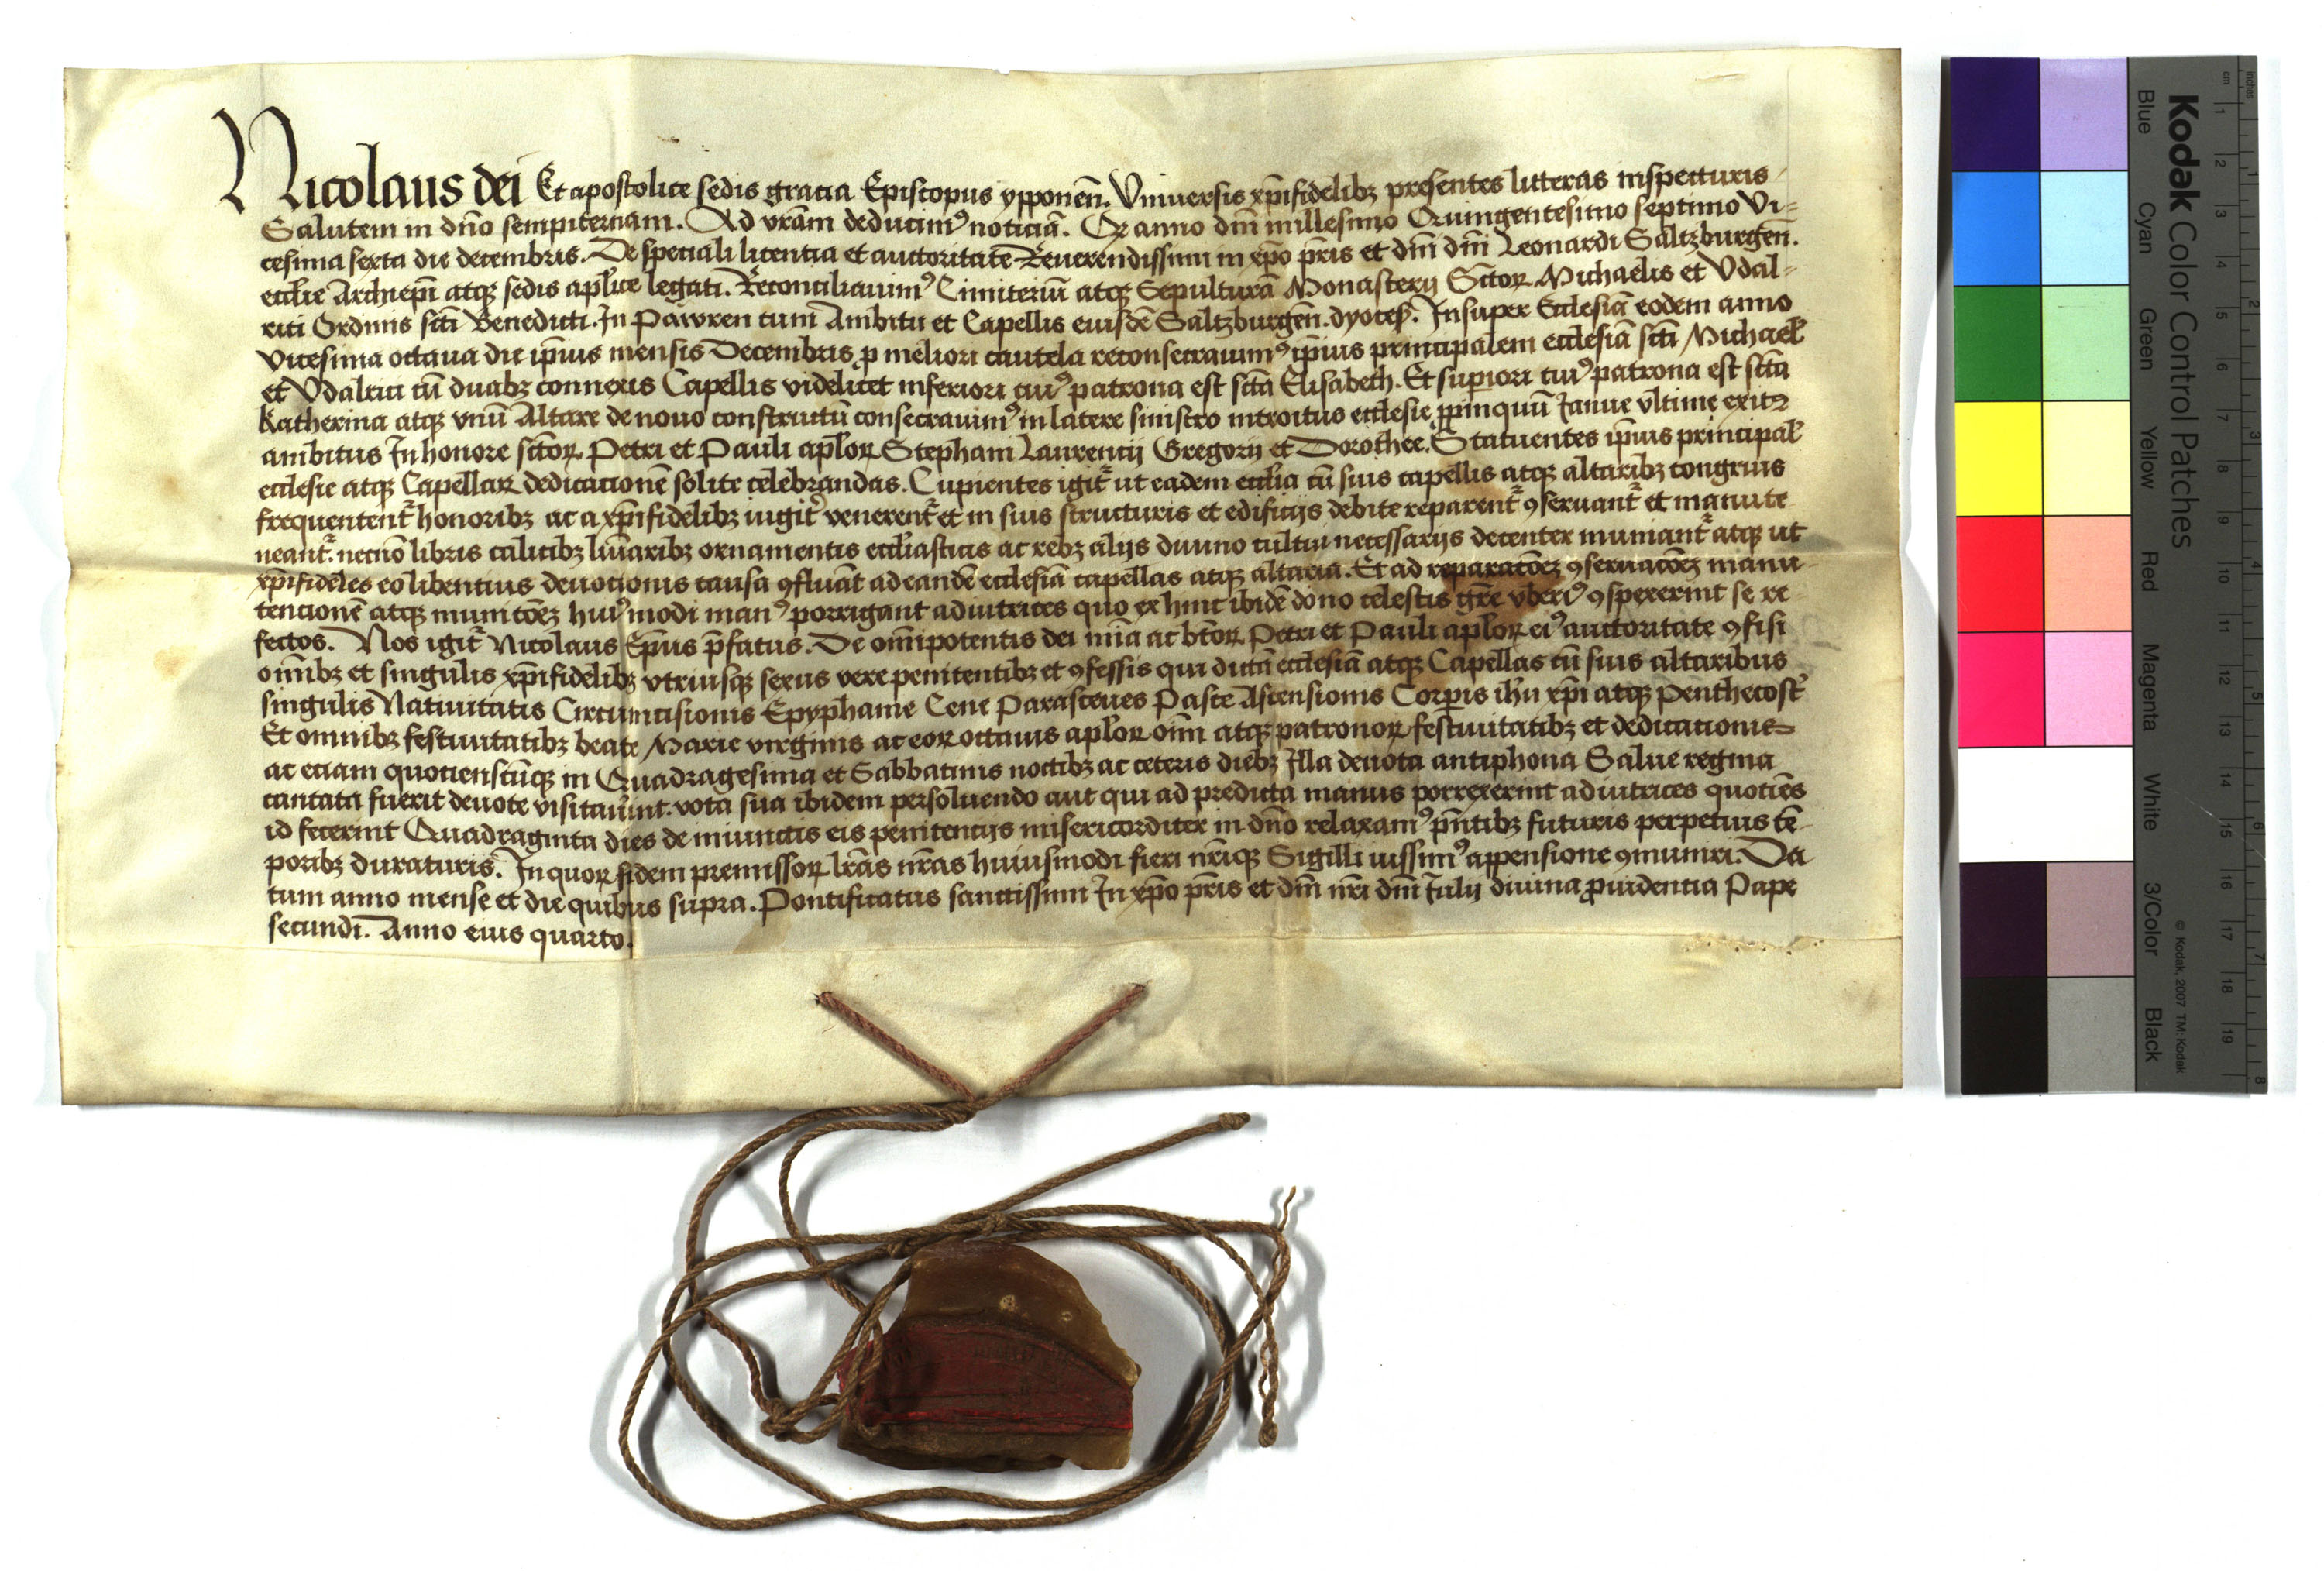 Nicolaus dei Et apostolice sedis gracia Episcopus ypponen̄. Vniuersis xp̄ifidelibꝫ presentes litteras inspecturis
Salutem in dn̄o sempiternam. Ad vr̄am deducimꝰ noticiā. Qꝫ anno dn̄i millesimo Quingentesimo septimo Vi⸗
cesima sexta die decembris. De speciali licentia et auctoritate Reuerendissimi in xp̄o pr̄is et dn̄i dn̄i Leonardi Saltzburgen̄.
eccl̄ie Archiep̄i atqꝫ sedis apl̄ice legati. Reconciliauimꝰ Cimiteriū atqꝫ Sepulturā Monasterij Sctōꝝ Michaelis et Vdal⸗
rici Ordinis scti̅ Benedicti. In Pawren cum Ambitu et Capellis eiusdē Saltzburgen̄. dyoces̄. Insuper Ecclesiā eodem anno
Vicesima octaua die ip̄ius mensis Decembris ꝑ meliori cautela reconsecrauimꝰ ip̄ius principalem ecclesiā scti̅ Michael̄
et Vdalrici cū duabꝫ connexis Capellis videlicet inferiori cuiꝰ patrona est scta̅ Elisabeth. Et suꝑiori cuiꝰ patrona est scta̅
Katherina atqꝫ vnū Altare de nouo constructū consecrauimꝰ in latere sinistro introitus ecclesie ꝓpinquū Ianue vltime exitꝰ
ambitus In honore sctōꝝ Petri et Pauli apl̄oꝝ Stephani Laurencij Gregorij et Dorothee. Statuentes ip̄ius principal̄
ecclesie atqꝫ Capellaꝝ dedicacionē solite celebrandas. Cupientes igit᷑ ut eadem eccl̄ia cū suis capellis atqꝫ altaribꝫ congruis
frequentent᷑ honoribꝫ ac a xp̄ifidelibꝫ iugit᷑ venerent᷑ et in suis structuris et edificijs debite reparent᷑ ꝯseruant᷑ et manute
neant᷑. necnō libris calicibꝫ lūaribꝫ ornamentis eccl̄iasticis ac rebꝫ alijs diuino cultui necessarijs decenter muniant᷑ atqꝫ ut
xp̄ifideles eo libentius deuocionis causa ꝯfluāt ad eandē ecclesiā capellas atqꝫ altaria. Et ad reparacōeꝫ ꝯseruacōeꝫ manu
tencionē atqꝫ municōeꝫ huiꝰmodi manꝰ porrigant adiutrices quo ex hinc ibidē dono celestis gr̄e vberiꝰ ꝯspexerint se re
fectos. Nos igit᷑ Nicolaus Ep̄us p̄fatus. De om̄ipotentis dei mīa ac btō̄ꝝ Petri et Pauli apl̄oꝝ eiꝰ auctoritate ꝯfisi
om̄ibꝫ et singulis xp̄ifidelibꝫ vtriusqꝫ sexus vere penitentibꝫ et ꝯfessis qui dictā ecclesiā atqꝫ Capellas cū suis altaribus
singulis Natiuitatis Circumcisionis Epyphanie Cene Parasceues Pasce Ascensionis Corꝑis ih̄u xp̄i atqꝫ Penthecost᷑
Et omnibꝫ festiuitatibꝫ beate Marie virginis ac eoꝝ octauis apl̄oꝝ oīm atqꝫ patronoꝝ festiuitatibꝫ et dedicacionis
ac eciam quotienscūqꝫ in Quadragesima et Sabbatinis noctibꝫ ac ceteris diebꝫ Illa deuota antiphona Salue regina
cantata fuerit deuote visitau᷑int. vota sua ibidem persoluendo aut qui ad predicta manus porrexerint adiutrices quotiēs
id fecerint Quadraginta dies de iniunctis eis penitencijs misericorditer in dn̄o relaxamꝰ p̄ntibꝫ futuris perpetuis tē
poribꝫ duraturis. In quoꝝ fidem premissoꝝ lr̄as nr̄as huiusmodi fieri nr̄iqꝫ Sigilli iussimꝰ appensione ꝯmuniri. Da
tum anno mense et die quibus supra. Pontificatus sanctissimi In xp̄o pr̄is et dn̄i nr̄i dn̄i Iulij diuina ꝓuidentia Pape
secundi. Anno eius quarto.
Kodak Color Control Patches
Blue Cyan Green Yellow Red Magenta White 3/Color Black
© Kodak, 2007 TM: Kodak
cm 1 2 3 4 5 6 7 8 9 10 11 12 13 14 15 16 17 18 19
inches 1 2 3 4 5 6 7 8